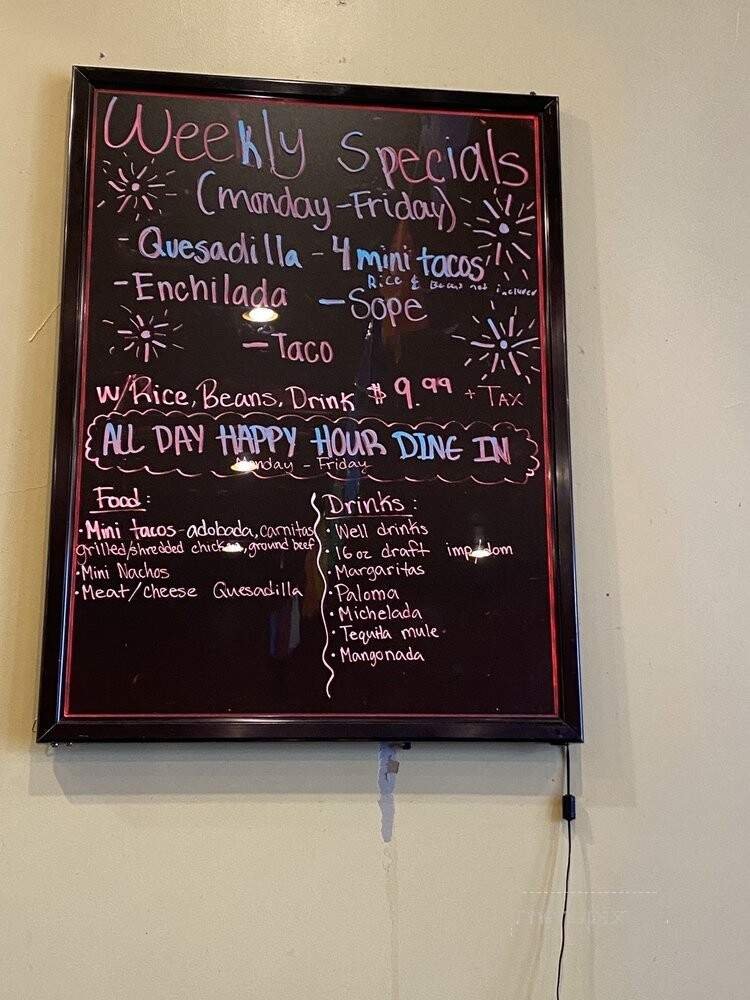 Weekly Specials
(Monday-Friday)
- Quesadilla - 4 mini tacos
Rice & Beans not included
- Enchilada - Sope
- Taco
w/Rice, Beans, Drink $9.99 + Tax
ALL DAY HAPPY HOUR DINE IN
Monday - Friday
Food:
· Mini tacos - adobada, carnitas
grilled/shredded chicken, ground beef
· Mini Nachos
· Meat/cheese Quesadilla
Drinks:
· Well drinks
· 16 oz draft imp/dom
· Margaritas
· Paloma
· Michelada
· Tequila mule
· Mangonada